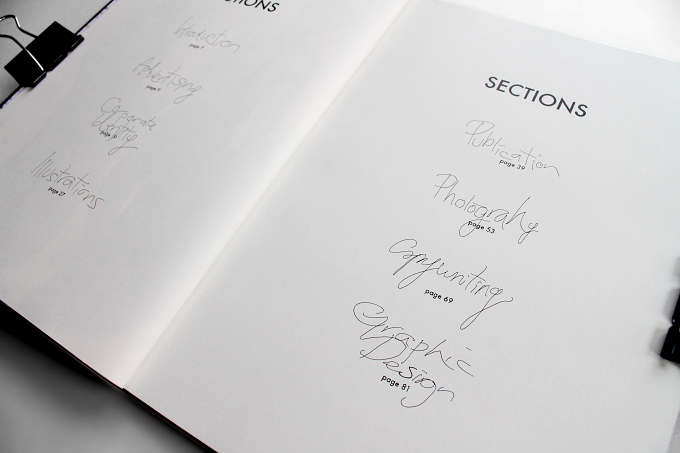 SECTIONS
Introduction
page 7
Advertising
Corporate
Identity
Illustrations
page 27
SECTIONS
Publication
page 39
Photograhy
page 53
Copywriting
page 69
Graphic
Design
page 81